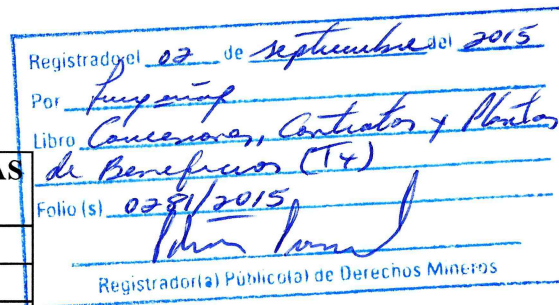 Registrado el 02 de septiembre del 2015
Por
Libro Concesiones, Contratos y Plantas
AS
de Beneficios (T4)
Folio (s) 0281/2015
Registrador(a) Público(a) de Derechos Mineros